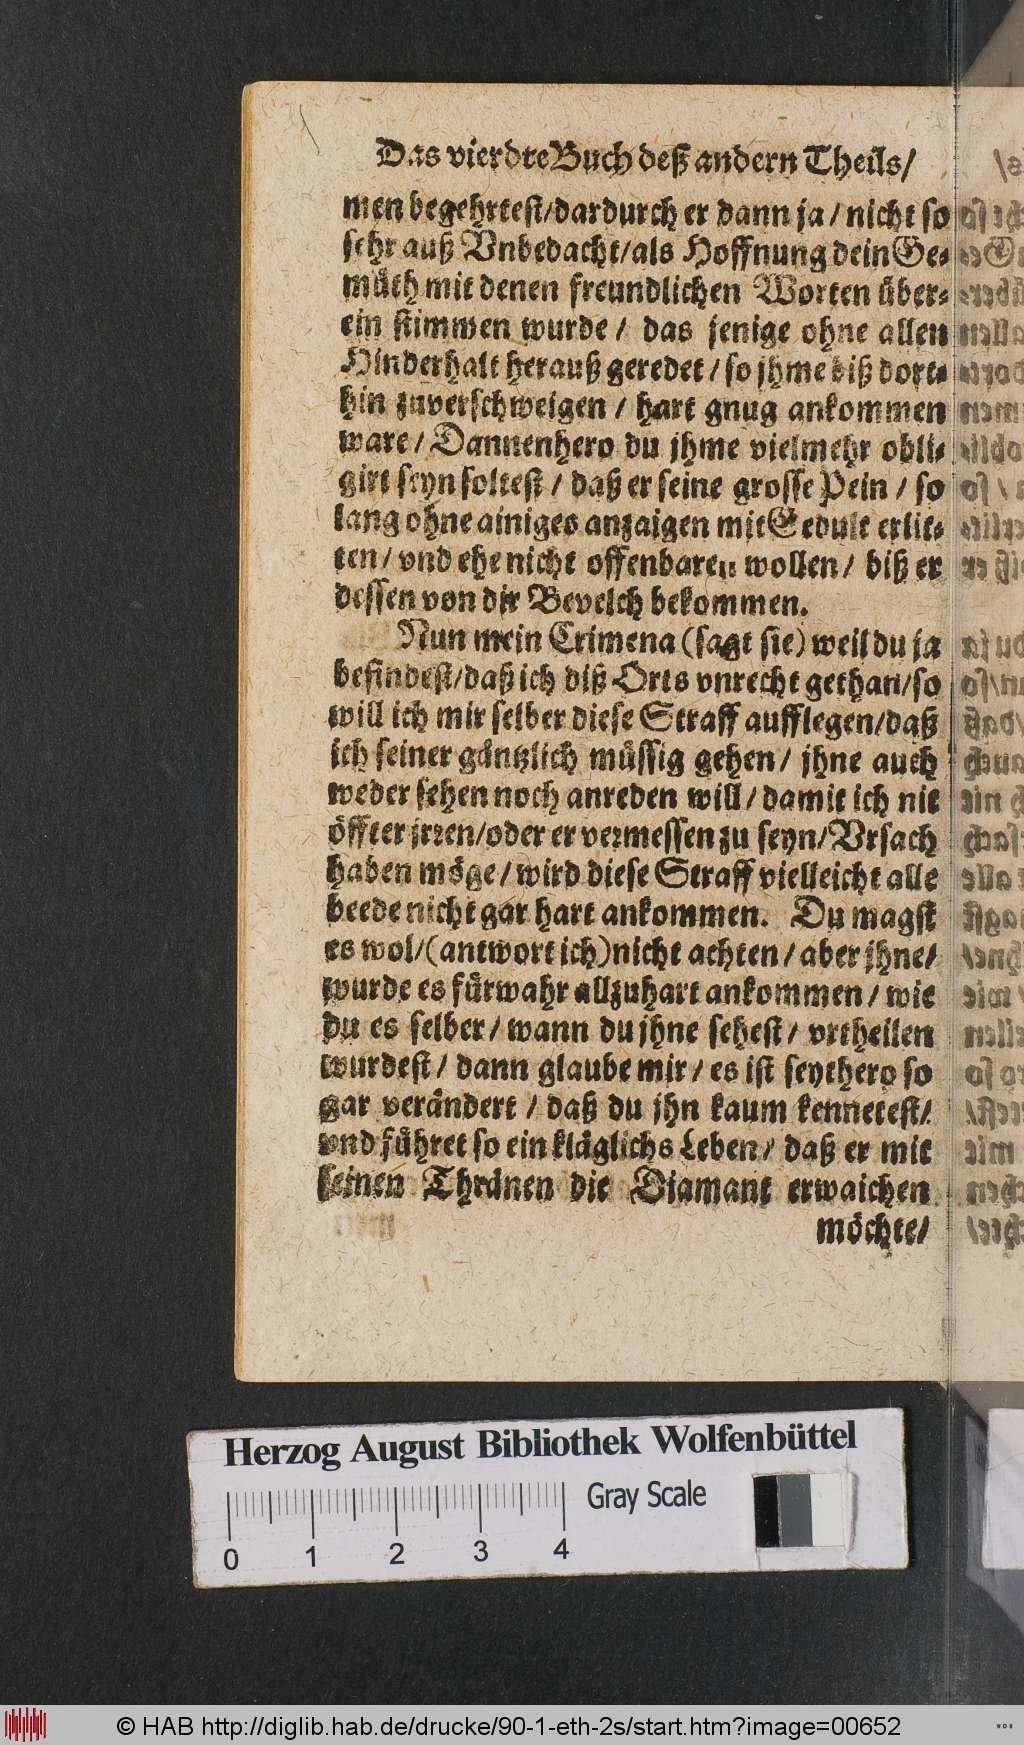 Das vierdte Buch deß andern Theils/
men begehrtest/dardurch er dann ja / nicht so
sehr auß Vnbedacht/als Hoffnung dein Ge-
müth mit denen freundlichen Worten über-
ein stimmen wurde / das jenige ohne allen
Hinderhalt herauß geredet / so jhme biß dort-
hin zuverschweigen / hart gnug ankommen
ware / Dannenhero du jhme vielmehr obli-
girt seyn soltest / daß er seine grosse Pein / so
lang ohne ainiges anzaigen mit Gedult erlit-
ten / vnd ehe nicht offenbaren wollen / biß er
dessen von dir Bevelch bekommen.
Nun mein Crimena (sagt sie) weil du ja
befindest/daß ich diß Orts vnrecht gethan/so
will ich mir selber diese Straff aufflegen/daß
ich seiner gäntzlich müssig gehen / jhne auch
weder sehen noch anreden will / damit ich nit
öffter jrren/oder er vermessen zu seyn/Vrsach
haben möge / wird diese Straff vielleicht alle
beede nicht gar hart ankommen. Du magst
es wol/(antwort ich)nicht achten / aber jhne/
wurde es fürwahr allzuhart ankommen / wie
du es selber / wann du jhne sehest / vrtheilen
wurdest / dann glaube mir / es ist seythero so
gar verändert / daß du jhn kaum kennetest/
vnd führet so ein kläglichs Leben / daß er mit
seinen Thränen die Diamant erwaichen
möchte/
Herzog August Bibliothek Wolfenbüttel
Gray Scale
0 1 2 3 4
© HAB http://diglib.hab.de/drucke/90-1-eth-2s/start.htm?image=00652